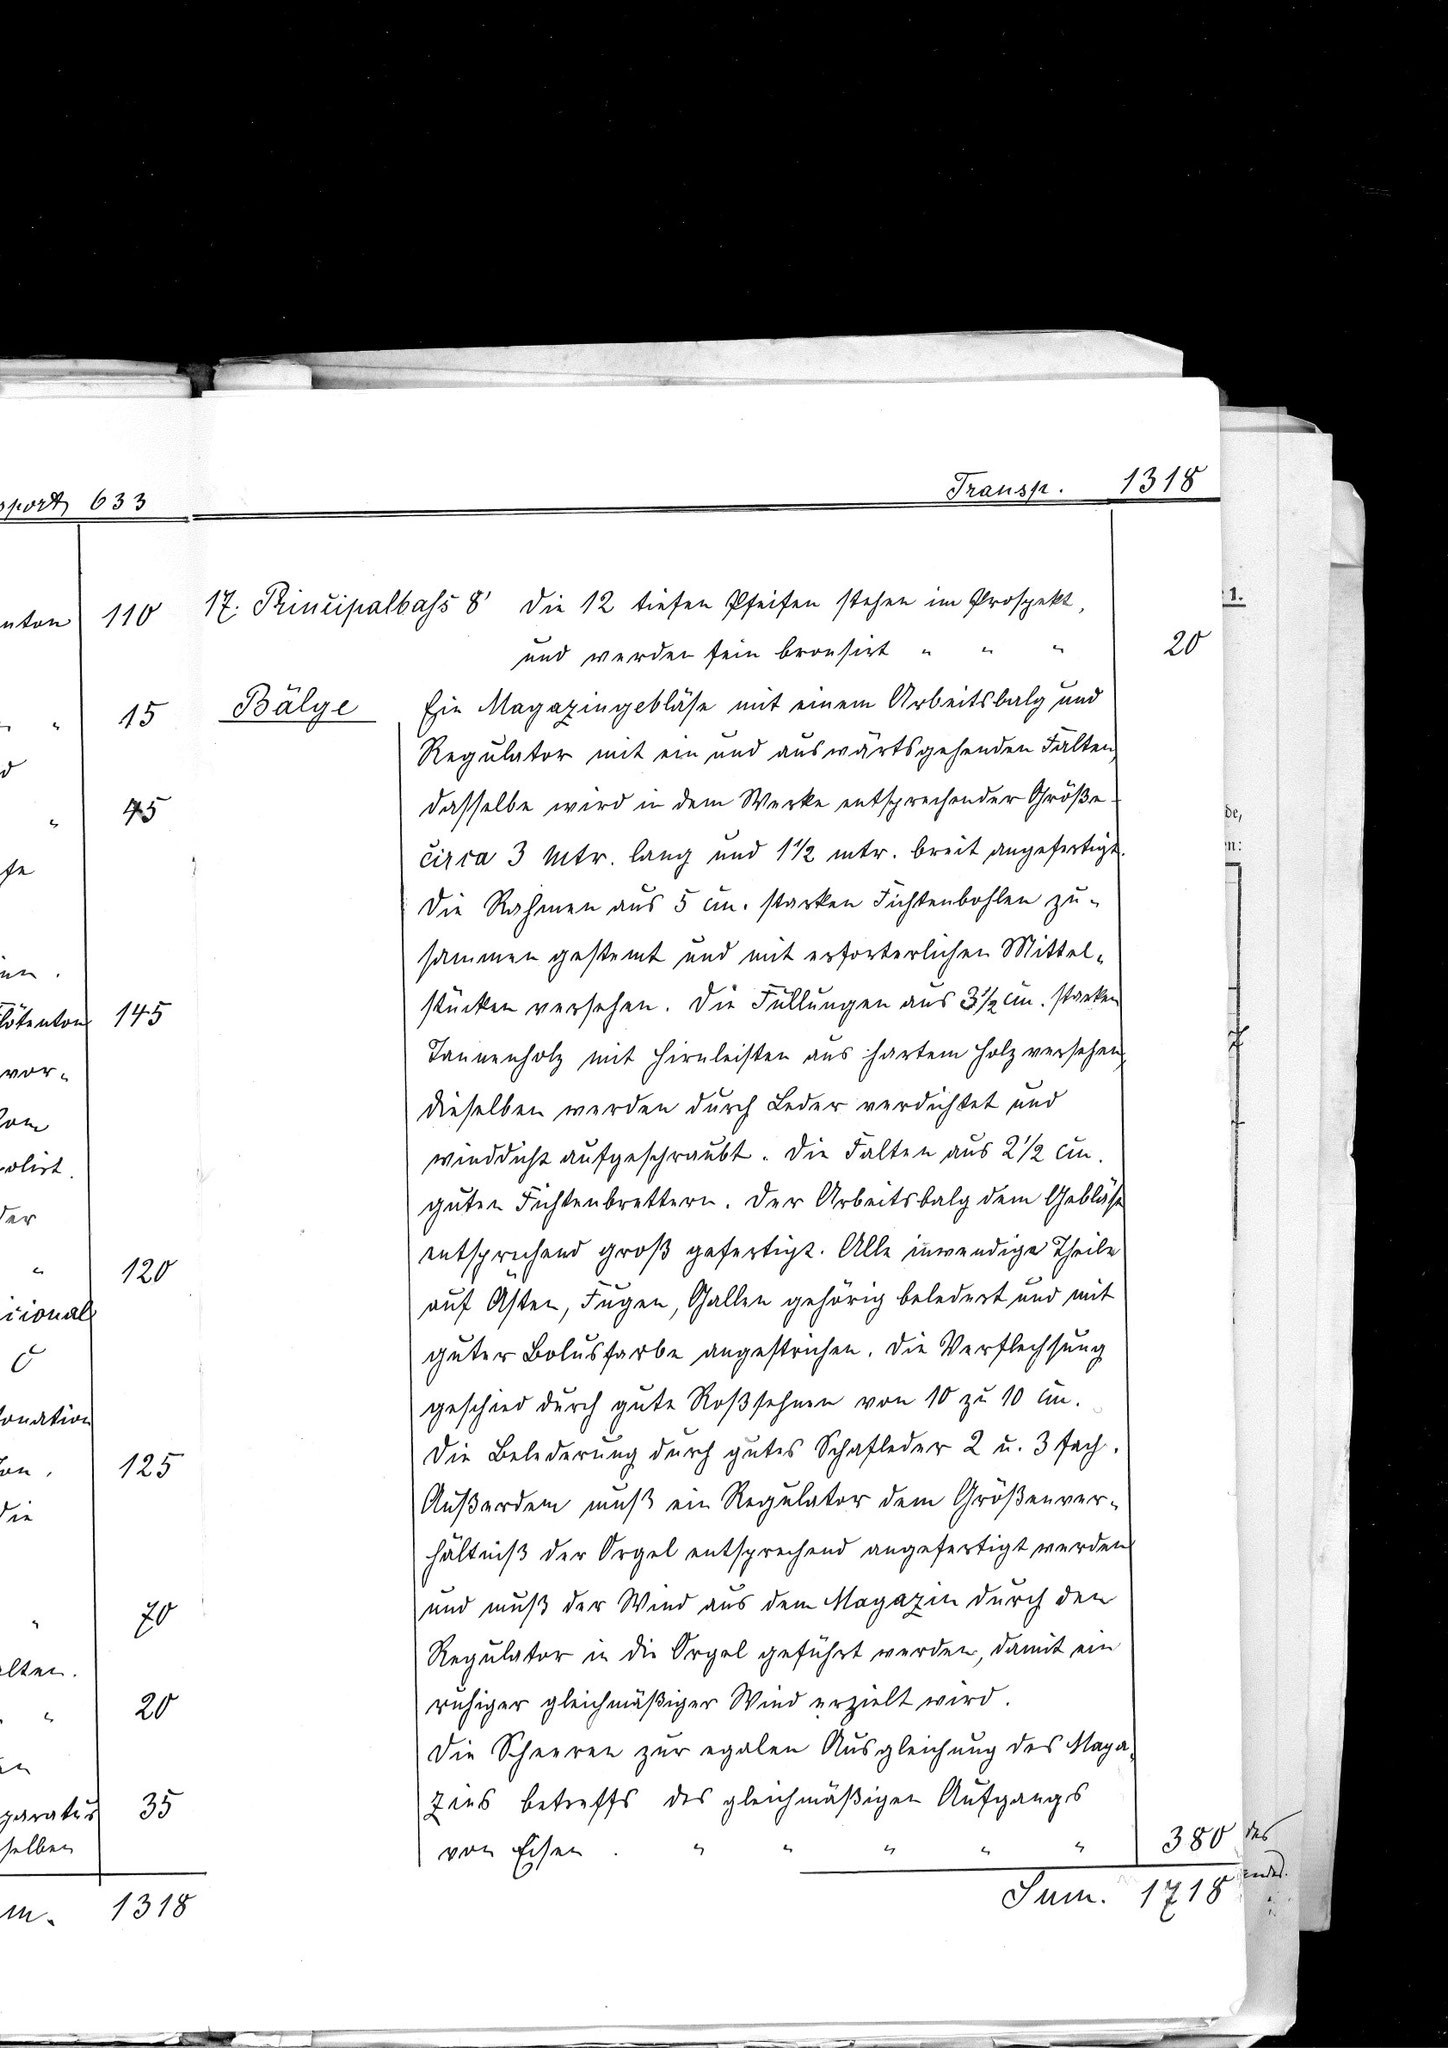 sport 633
nton 110
" 15
d
" 45
fe
nen.
Flötenton 145
vor-
polirt.
der
" 120
icional
C
tonation
Ton. 125
die
" 70
alten.
" 20
en
paratus 35
selben
m. 1318
Transp. 1318
17. Principalbaſs 8' Die 12 tiefen Pfeifen stehen im Prospekt,
und werden fein bronsirt " " " 20
Bälge Ein Magazingebläse mit einem Arbeitsbalg und
Regulator mit ein und auswärtsgehenden Falten,
dasselbe wird in dem Werke entsprechender Größe
circa 3 Mtr. lang und 1 1/2 mtr. breit angefertigt.
Die Rahmen aus 5 cm. starken Fichtenbohlen zu-
sammen gestemt und mit erforterlichen Mittel-
stücken versehen. Die Füllungen aus 3 1/2 cm. starken
Tannenholz mit Hirnleisten aus hartem Holz versehen,
dieselben werden durch Leder verdichtet und
winddicht aufgeschraubt. Die Falten aus 2 1/2 cm.
guten Fichtenbrettern. Der Arbeitsbalg dem Gebläse
entsprechend groß gefertigt. Alle inwendige Theile
auf Ästen, Fugen, Gallen gehörig beledert und mit
guter Bolusfarbe angestrichen. Die Verflechsung
geschied durch gute Roßsehnen von 10 zu 10 cm.
Die Belederung durch gutes Schafleder 2 u. 3 fach.
Außerdem muß ein Regulator dem Größenver-
hältniß der Orgel entsprechend angefertigt werden
und muß der Wind aus dem Magazin durch den
Regulator in die Orgel geführt werden, damit ein
ruhiger gleichmäßiger Wind erzielt wird.
Die Scheeren zur egalen Ausgleichung des Maga-
zins betreffs des gleichmäßigen Aufgangs
von Eisen . " " " " " 380
Sum. 1718
1.
de,
n:
des